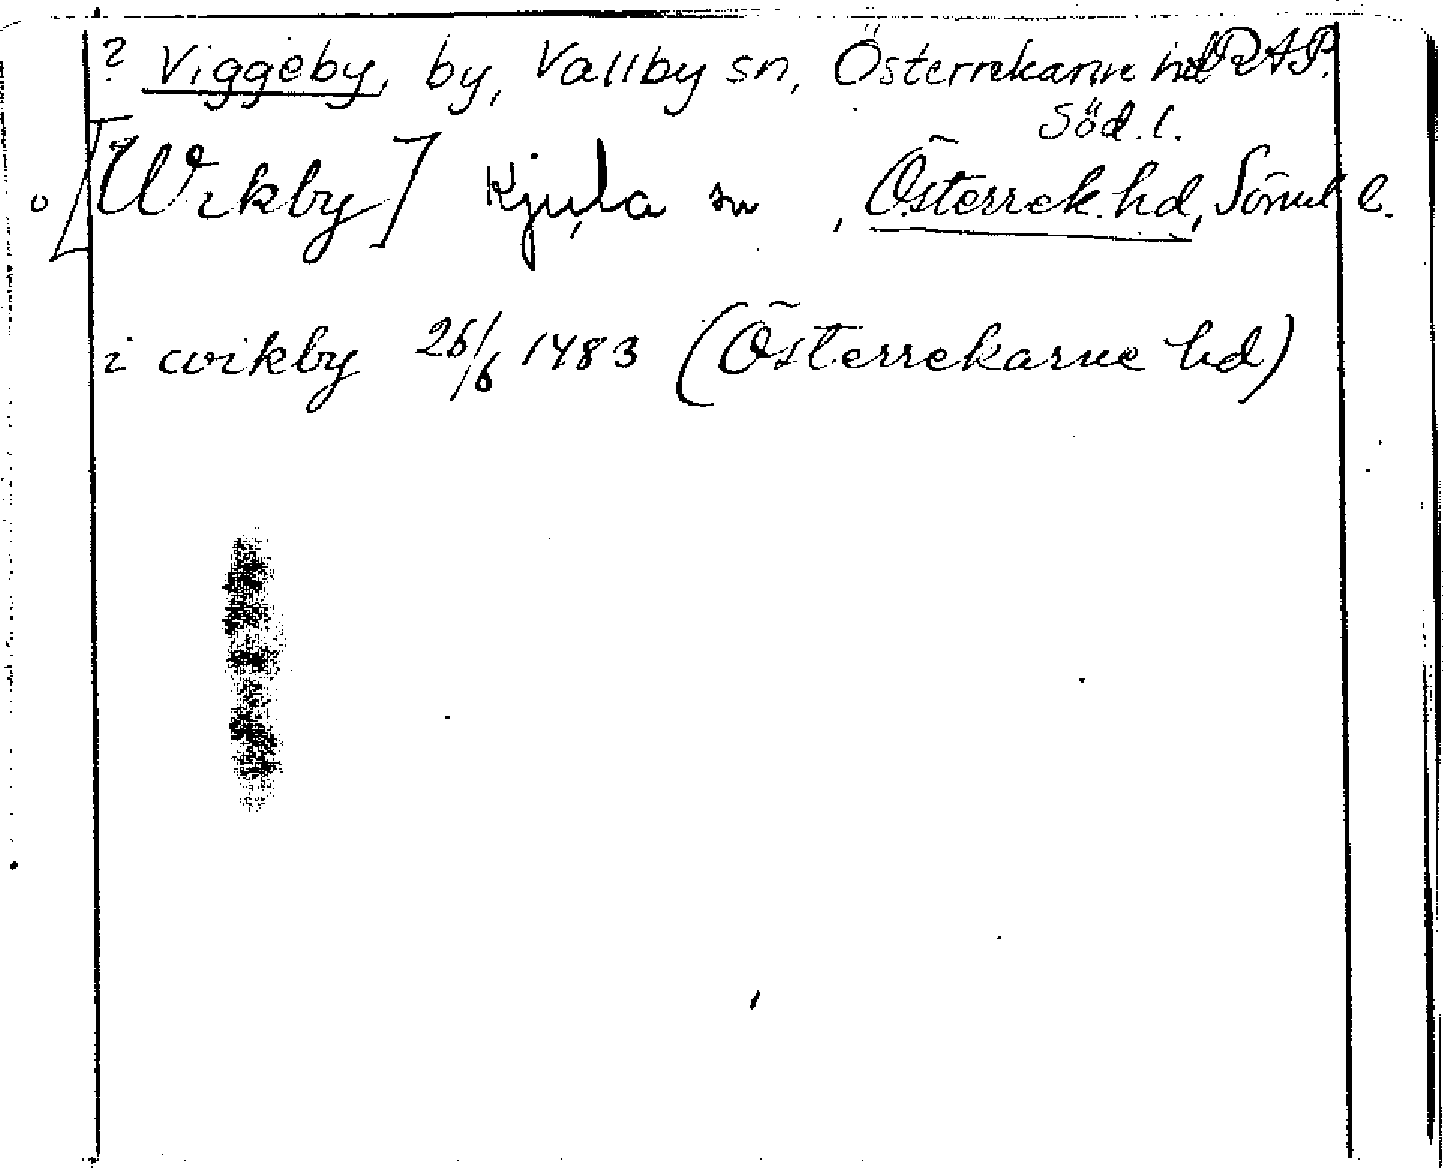 ? Viggeby, by, Vallby sn, Österrekarne hd RAP.
Söd. l.
[Wikby] Kjula sn, Österrek. hd, Sörml l.
i wikby 26/6 1483 (Österrekarne hd)